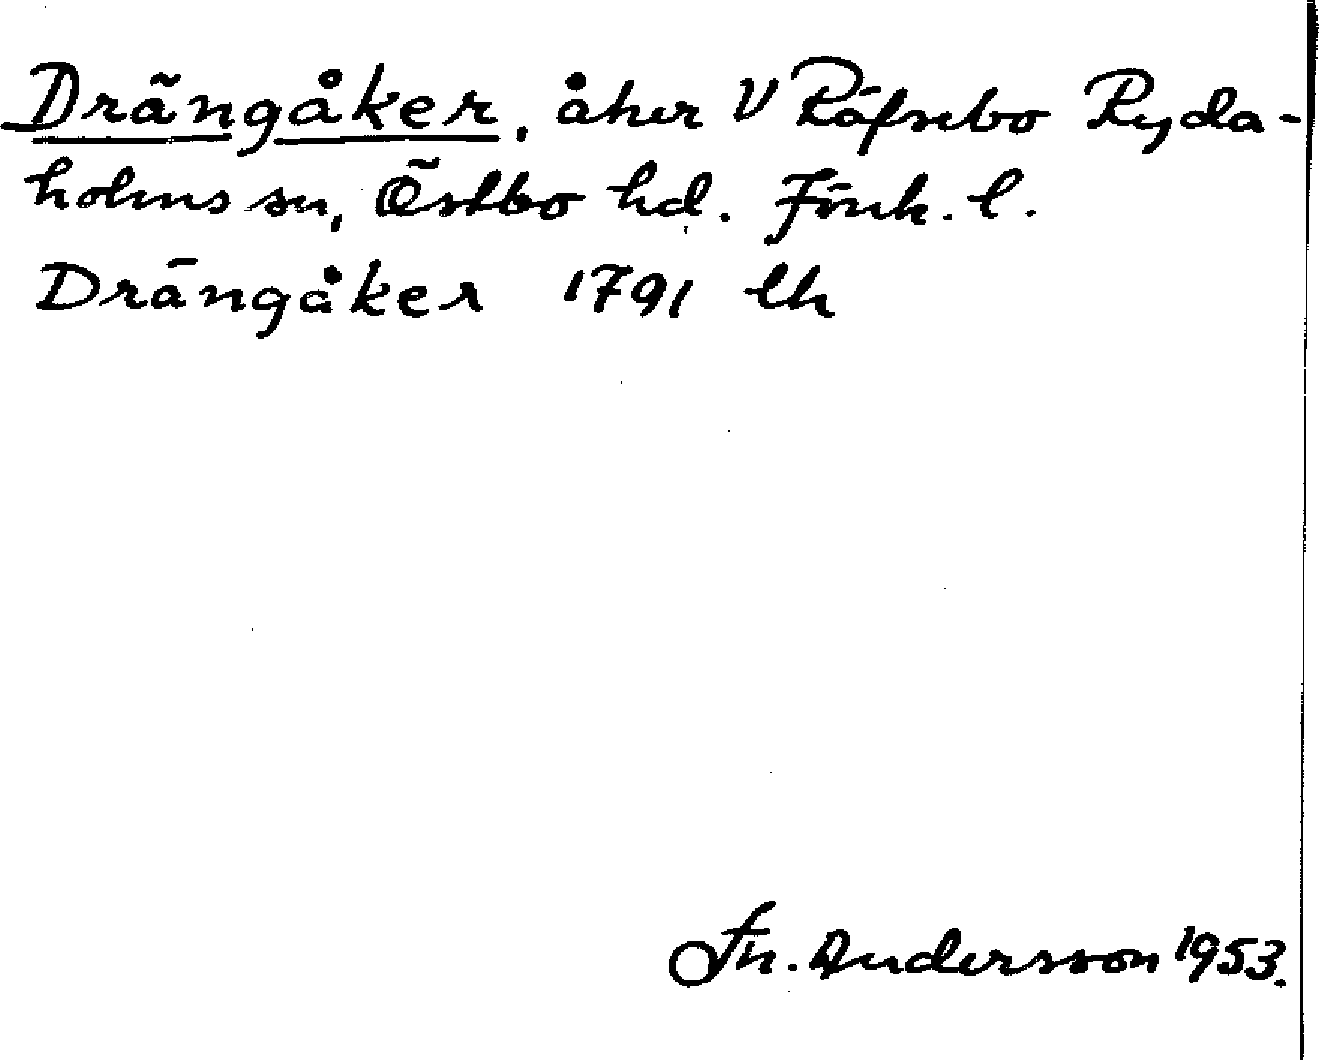 Drängåker, åker V Räfsebo Ryda-
holms sn, Östbo hd. Jönk. l.
Drängåker 1791 lh
Th. Andersson 1953.